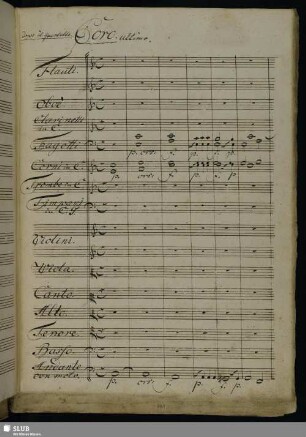 Dopo il Quintetto. Coro ultimo.
Flauti.
Oboè
Clarinetti
in C.
Fagotti
p. cres. f. p. f. p.
Corni in C.
p. cres. f. p. f. p.
Trombe in C.
Timpani
in C. G.
Violini.
Viola.
Canto.
Alto.
Tenore.
Basso.
Andante
con moto.
p. cres. f. p. f. p.
SLUB